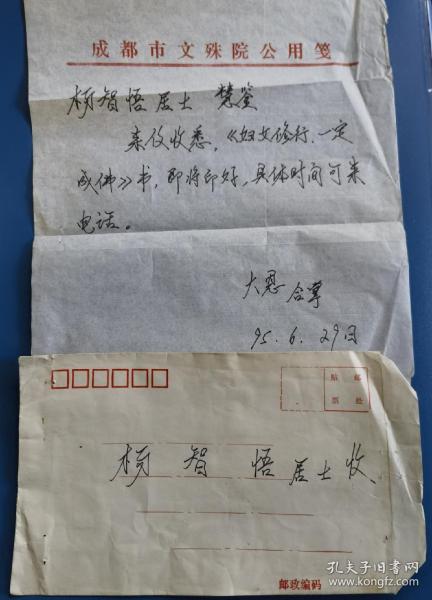 成都市文殊院公用笺
杨智悟居士 慧鉴
来仪收悉，《妇女修行，一定
成佛》书，即将印好，具体时间可来
电话。
大恩 合掌
95.6.29日
贴 邮
票 处
杨 智 悟居士收
邮政编码
孔夫子旧书网
www.kongfz.com